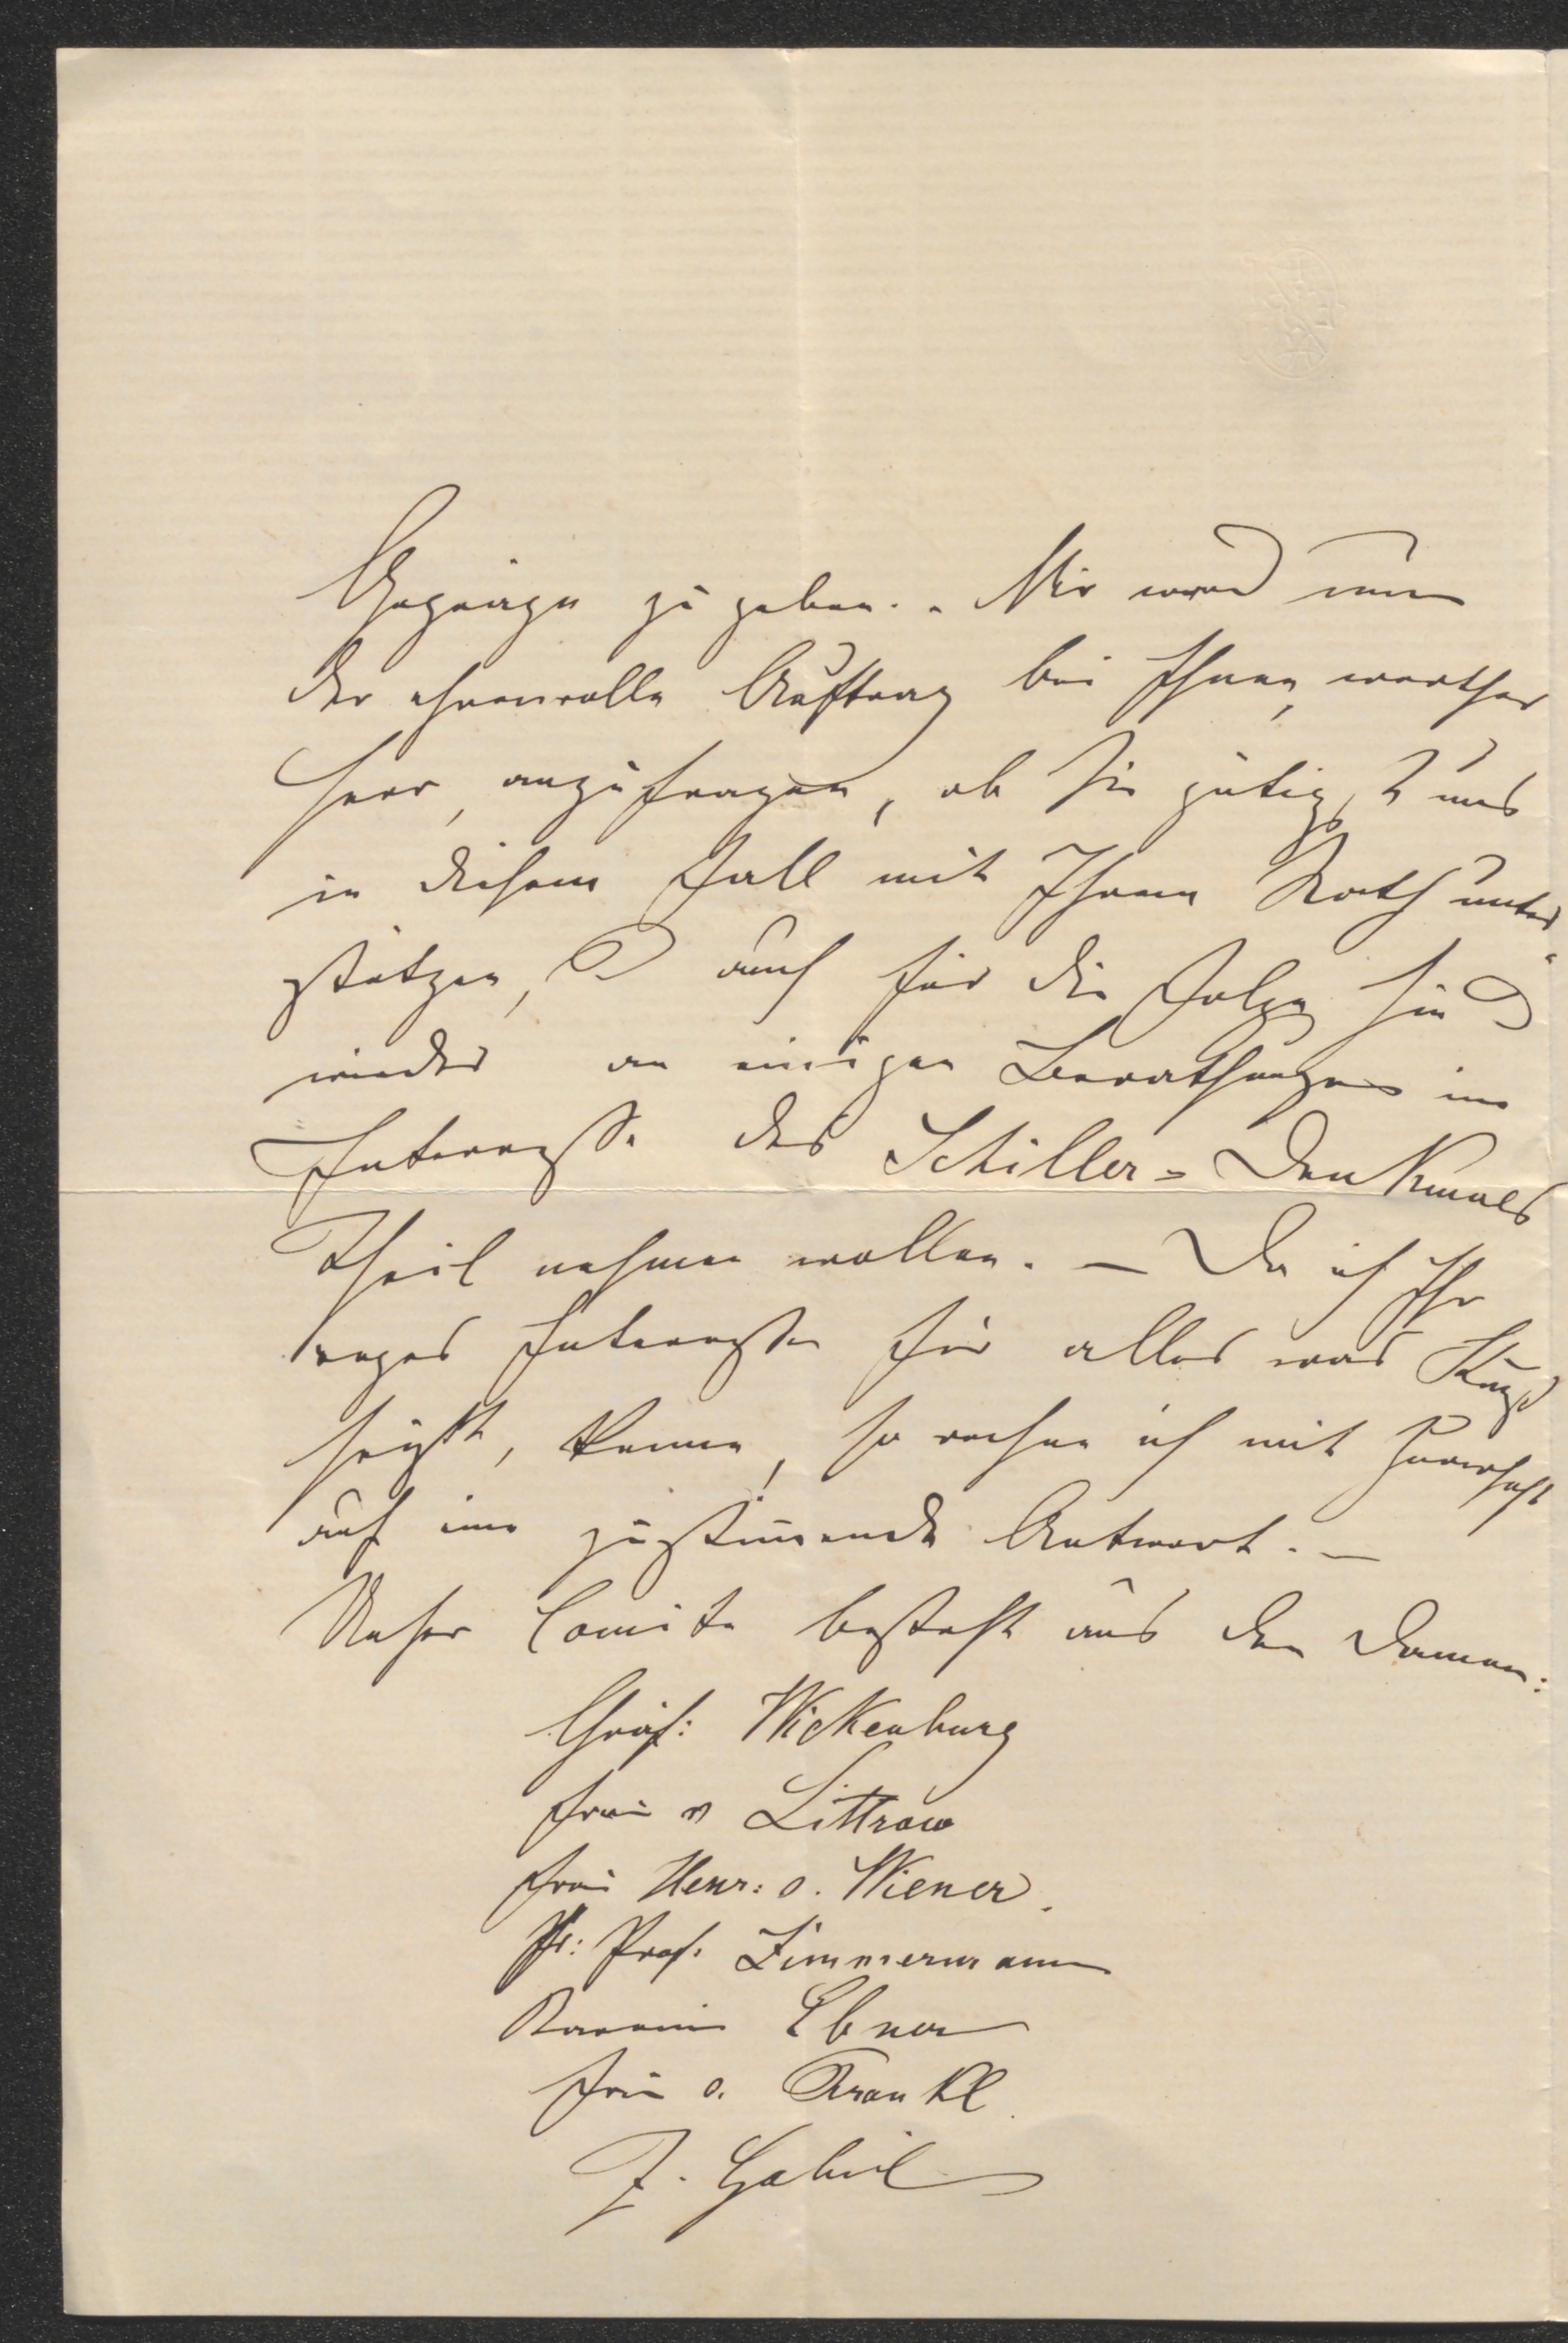 zu geben. - Mir ward nun
der ehrenvolle Auftrag bei Ihnen, werther
Herr, anzufragen, ob Sie gütigst uns
in diesem Fall mit Ihrem Rath unter
stützen, & auch für die Folge hin &
wieder an einigen Berathungen im
Interesse des Schiller=Denkmals
Theil nehmen wollen. — Da ich Ihr
reges Interesse für alles was Kunst
heißt, kenne, so rechne ich mit Zuversicht
auf eine zustimmende Antwort. —
Unser Comite besteht aus den Damen:
Gräf: Wickenburg
Frau v Littrow
Frau Henr: v. Wiener.
Fr: Prof. Zimmermann
Baronin Ebner
Frau v. Frankl
F. Gabil